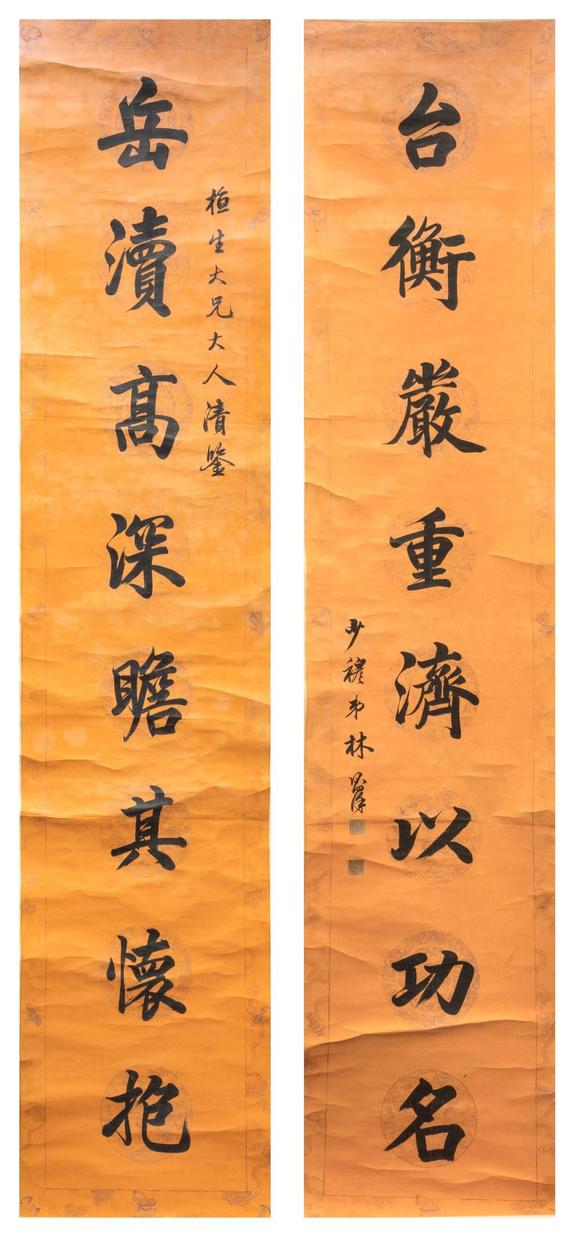 岳瀆髙深瞻其懷抱
桓生大兄大人清鑒
台衡嚴重濟以功名
少穆弟林則徐